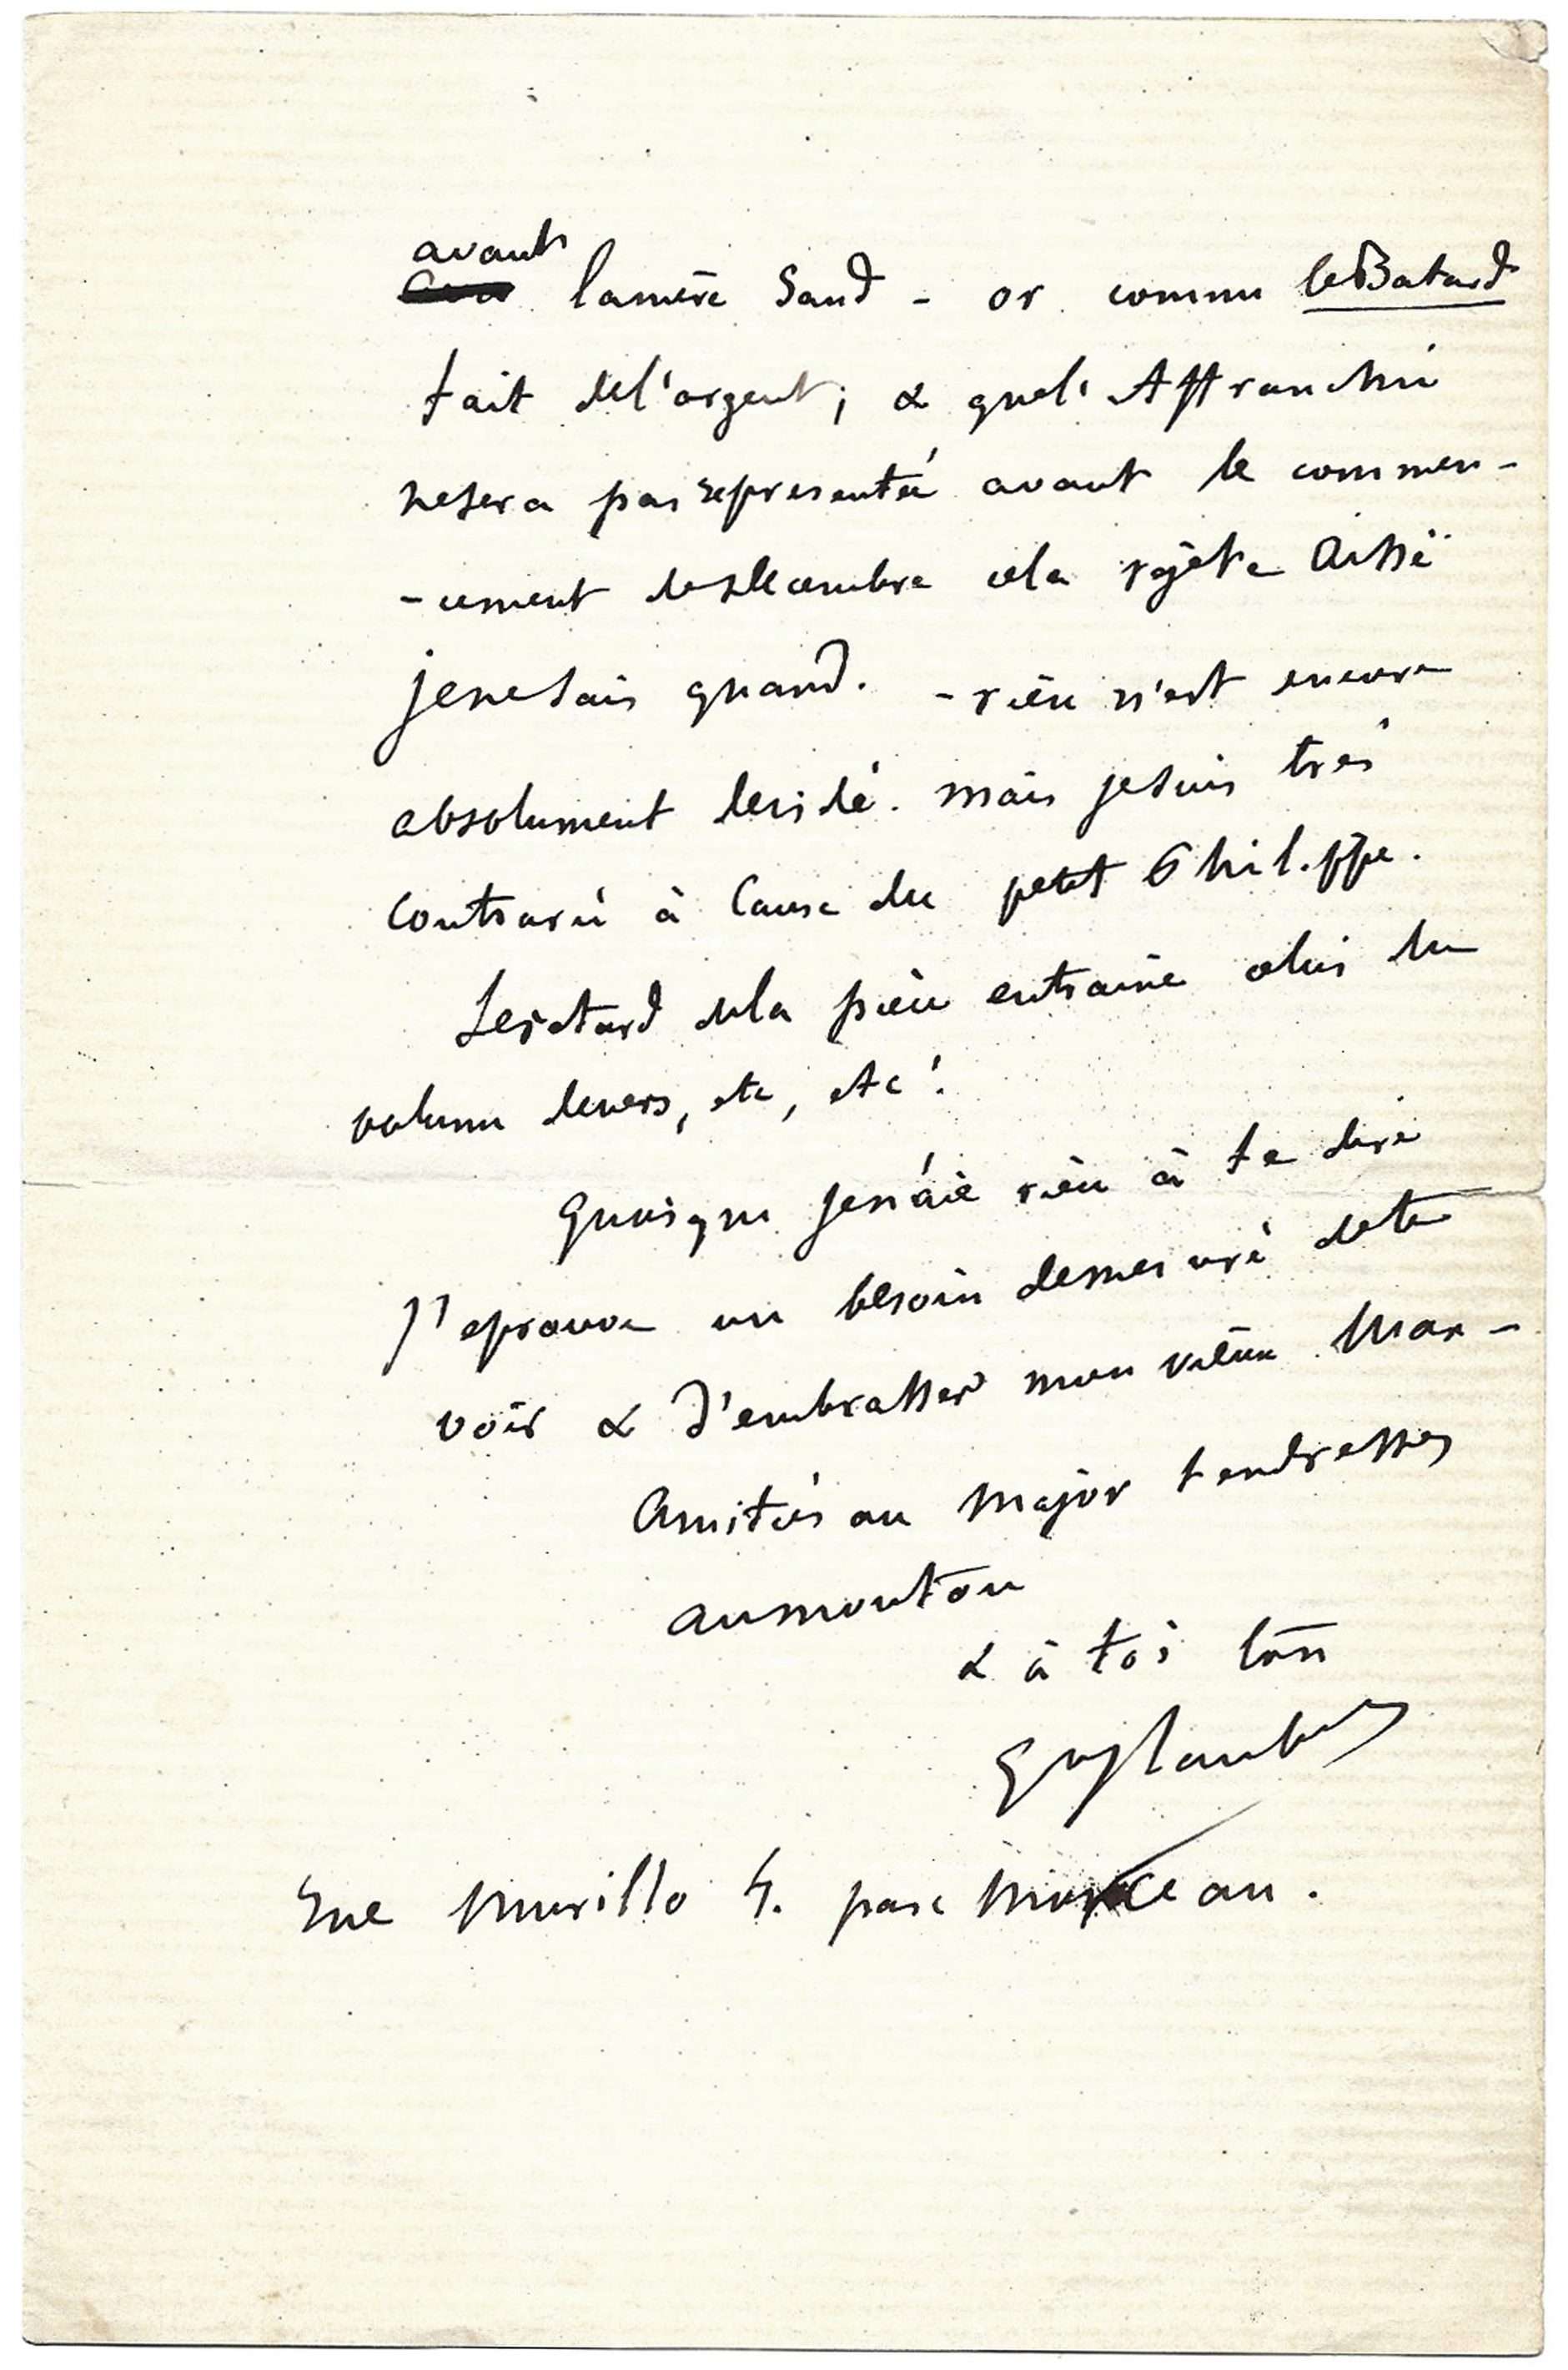 avant
la mère Sand - or comme le Batard
fait de l'argent ; & que l'Affranchi
ne sera pas representé avant le commen-
-cement de Xbre cela rejette Aïssé
je ne sais quand. - rien n'est encore
absolument decidé. mais je suis très
contrarié à cause du petit Philippe.
Le retard de la pièce entraine celui du
volume de vers, etc, etc !
Quoique je n'aie rien à te dire
J'eprouve un besoin demesuré de te
voir & d'embrasser mon vieux Max -
Amitiés au Major tendresses
au mouton
& à toi ton
Gve flaubert
rue Murillo 4. parc Monceau.